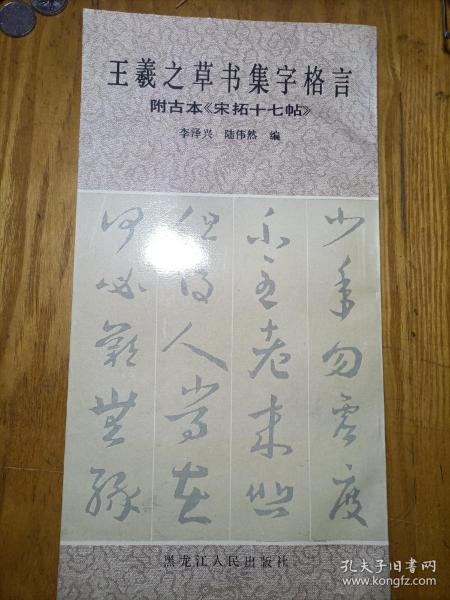 王羲之草书集字格言
附古本《宋拓十七帖》
李泽兴 陆伟然 编
少年勿虚度
老来
但得人常在
何必 無緣
黑龙江人民出版社
孔夫子旧书网
www.kongfz.com